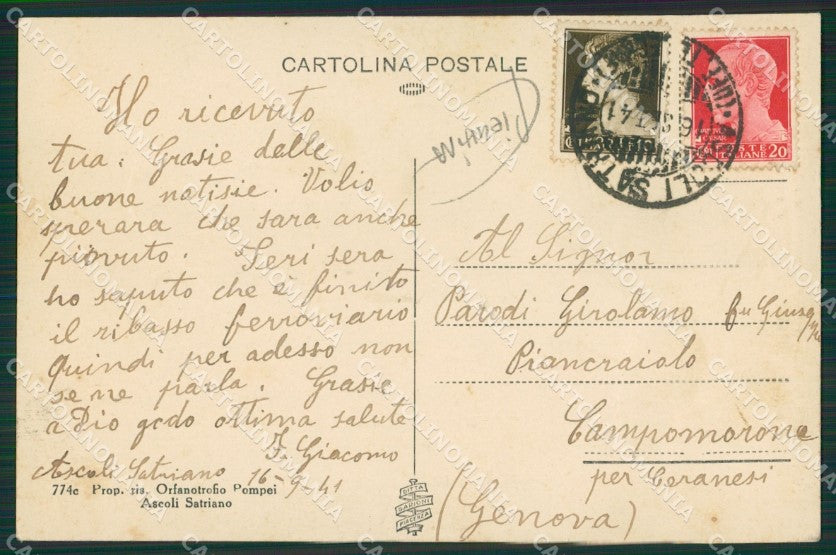 CARTOLINA POSTALE
Ho ricevuto
tua. Grasie delle
buone notisie. Volio
sperara che sara anche
piovuto. Ieri sera
ho saputo che è finito
il ribasso ferroviario
quindi per adesso non
se ne parla. Grasie
a Dio godo ottima salute
F. Giacomo
Ascoli Satriano 16-9-41
774c Prop. ris. Orfanotrofio Pompei
Ascoli Satriano
POSTE
ITALIANE 20
Al Signor
Parodi Girolamo fu Giuseppe
Piancraiolo
Campomorone
per Ceranesi
(Genova)
DITTA
BADIONI
PIACENZA
CARTOLINOMANIA